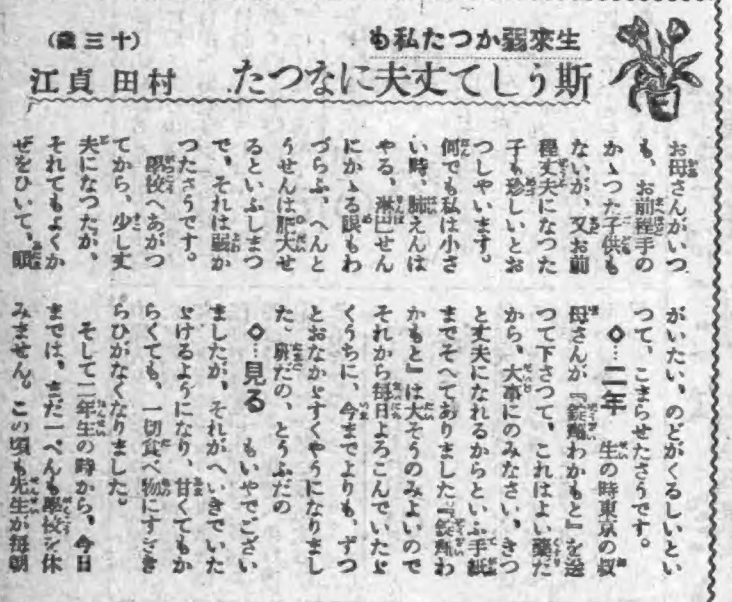 生來弱かつたも私も
斯うして丈夫になつた. 村田貞江
(十三歳)
お母さんがいつ
も、お前程手の
かゝつた子供も
ないが、又お前
程丈夫になつた
子も珍しいとお
つしやいます。
何でも私は小さ
い時、肺えんは
やる、淋巴せん
にかゝる眼もわ
づらふ、へんと
うせんは肥大せ
るといふしまつ
で、それは弱か
つたさうです。
學校へあがつ
てから、少し丈
夫になつたが、
それでもよくか
ぜをひいて、頭
がいたい、のどがくるしいとい
つて、こまらせたさうです。
◇…二年 生の時東京の叔
母さんが『錠劑わかもと』を送
つて下さつて、これはよい藥だ
から、大事にのみなさい、きつ
と丈夫になれるからといふ手紙
までそへてありました『錠劑わ
かもと』は大そうのみよいので
それから毎日よろこんでいたゞ
くうちに、今までよりも、ずつ
とおなかゞすくやうになりまし
た。卵だの、とうふだの
◇…見る もいやでござい
ましたが、それがへいきでいた
ゞけるようになり、甘くてもか
らくても、一切食べ物にすききら
らひがなくなりました。
そして二年生の時から、今日
までは、まだ一ぺんも學校を休
みません。この頃も先生が毎朝